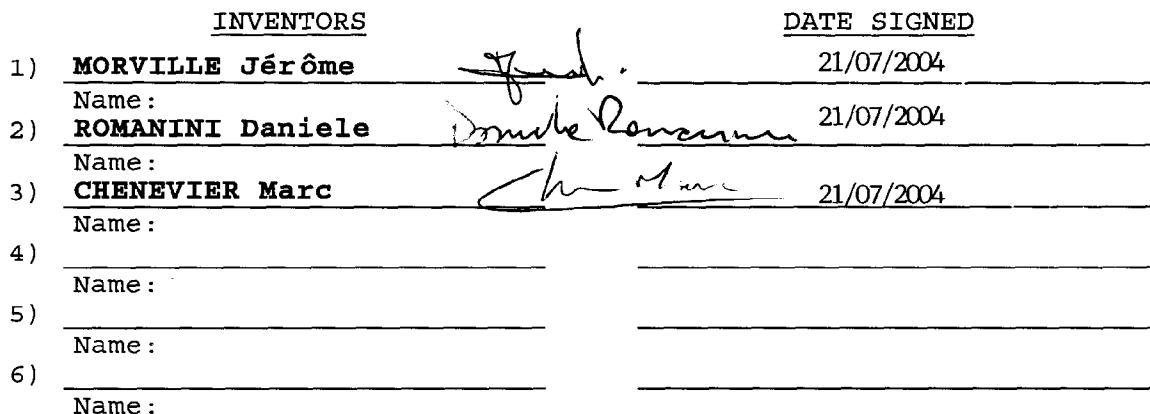 INVENTORS DATE SIGNED
1) MORVILLE Jérôme 21/07/2004
Name:
2) ROMANINI Daniele Daniele Romanini 21/07/2004
Name:
3) CHENEVIER Marc 21/07/2004
Name:
4)
Name:
5)
Name:
6)
Name: